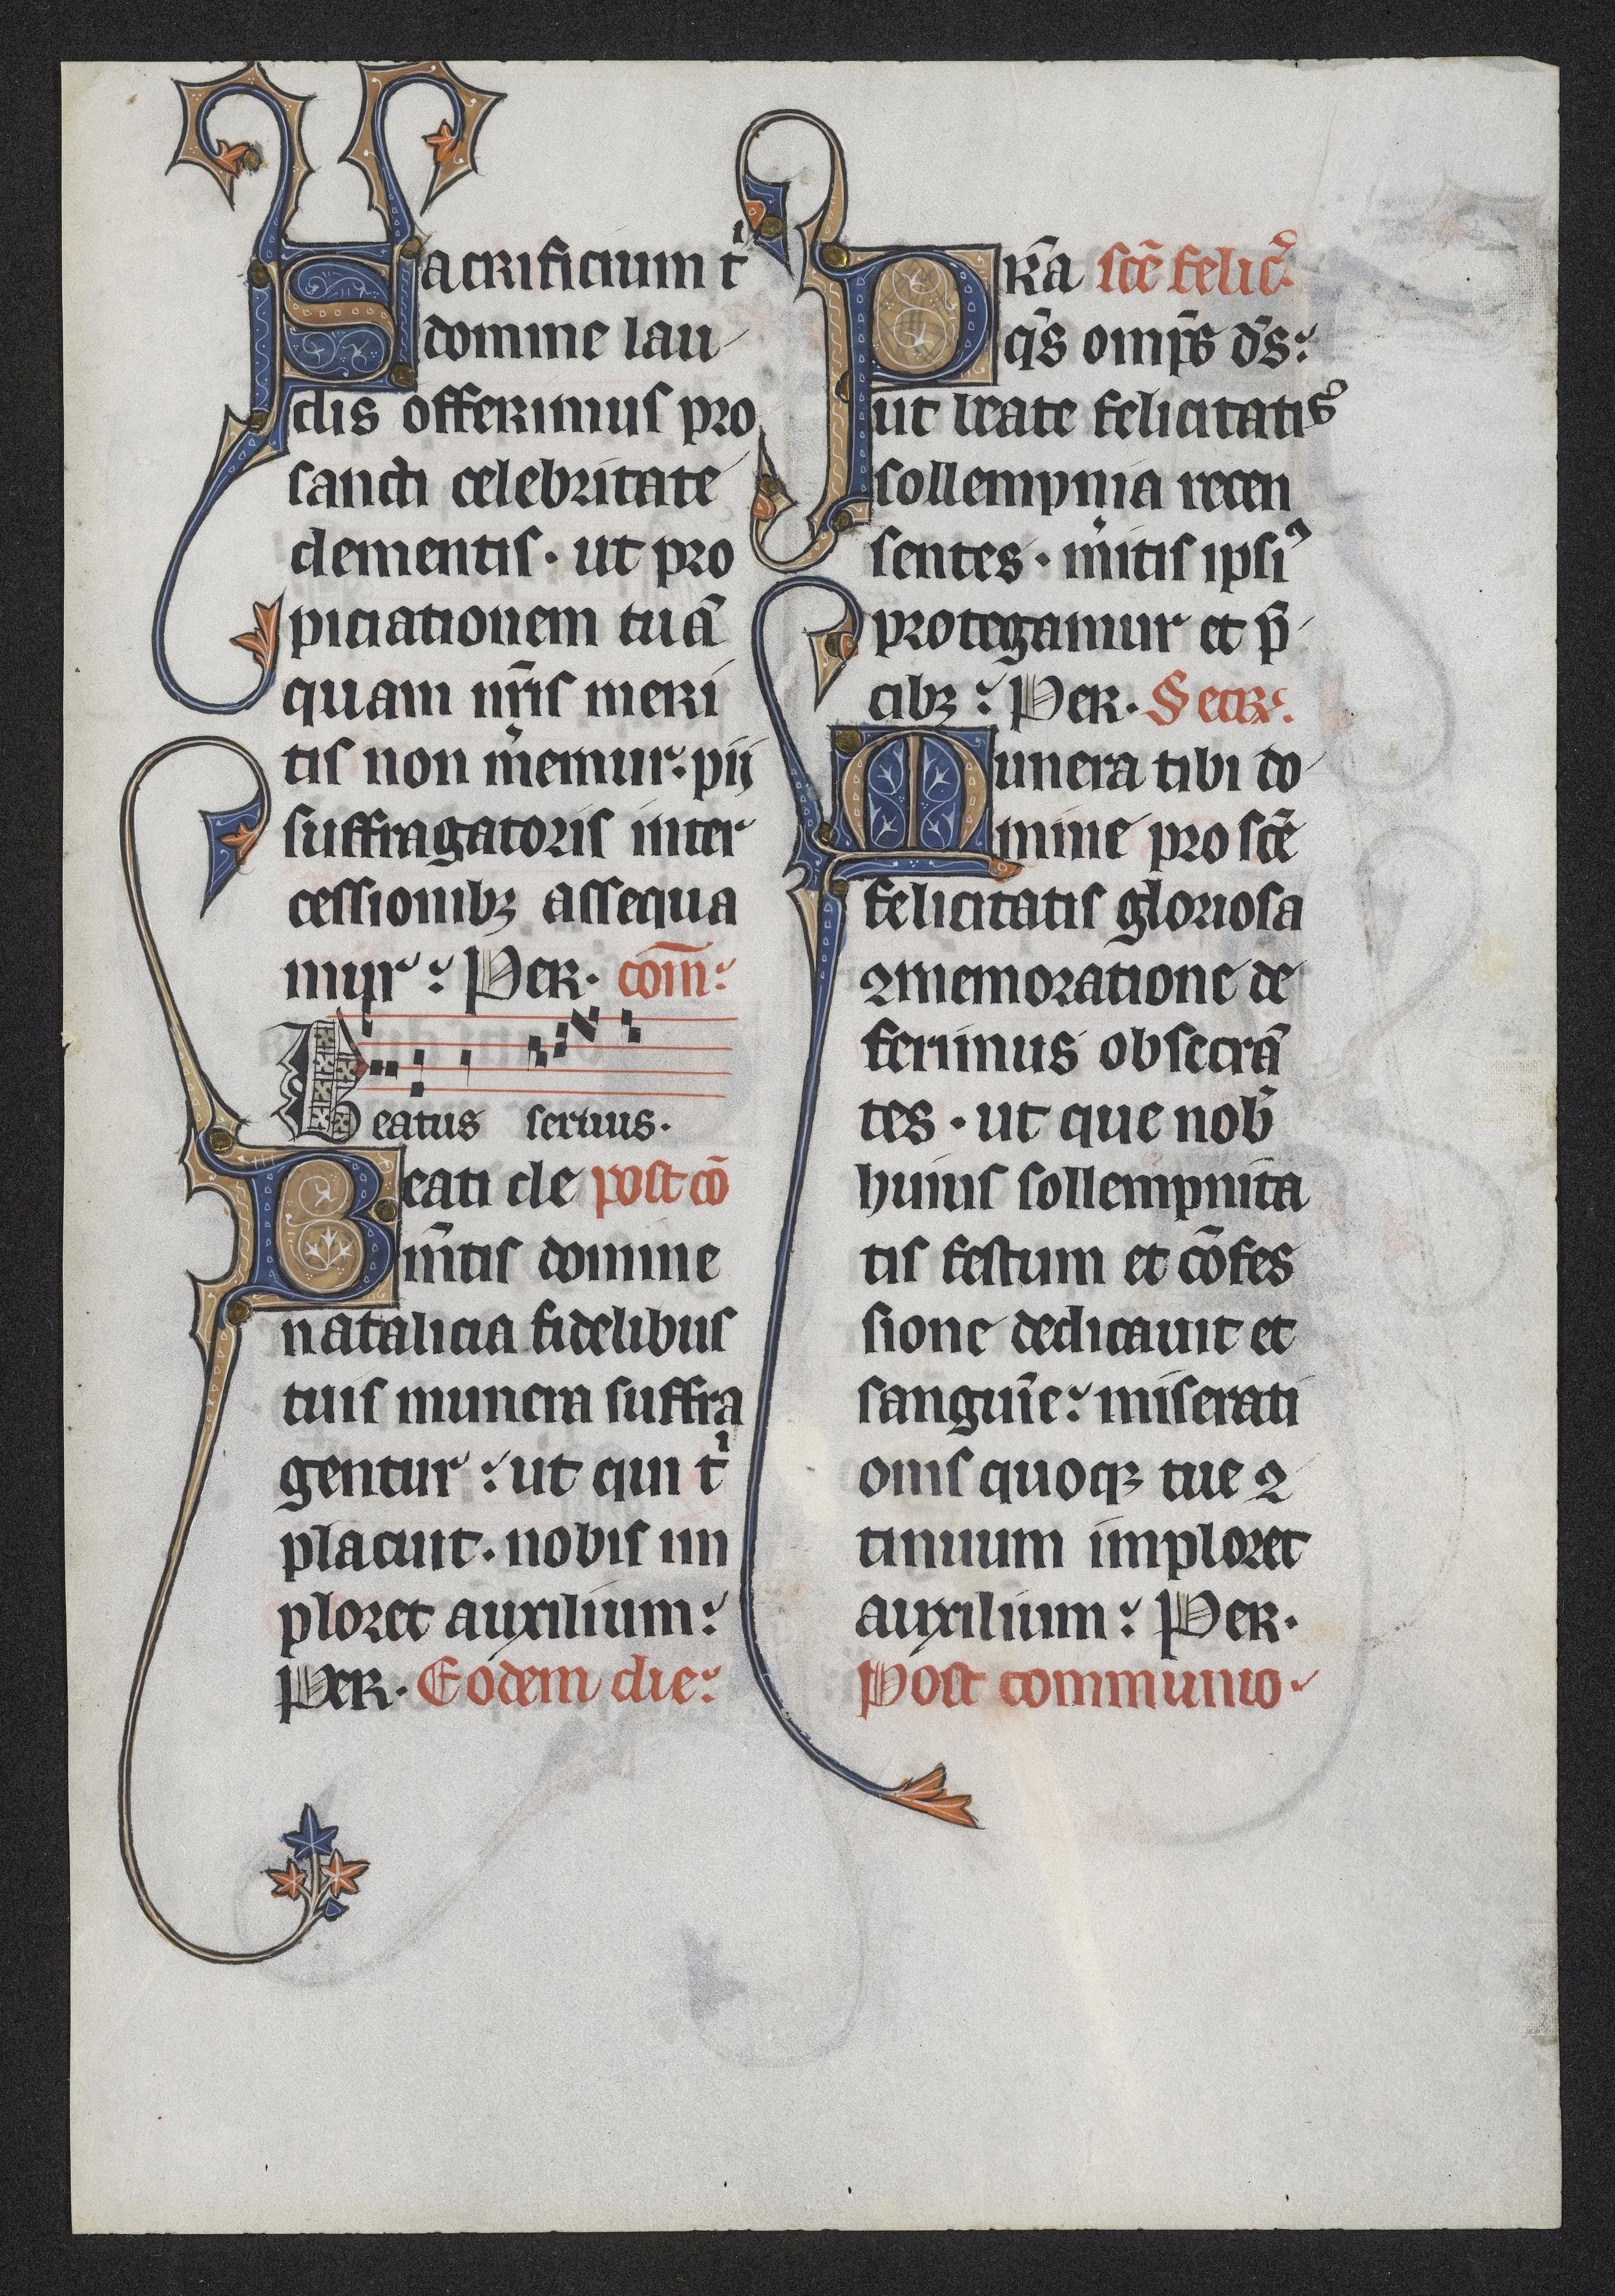 Sacrificium tⁱ
domine lau
dis offerimus pro
sancti celebritate
clementis · ut pro
piciationem tuā
quam nr̄is meri
tis non mͥemur : pij
suffragatoris inter
cessionibꝫ assequa
mur : Per · com̄ :
Beatus seruus ·
Beati cle post cō
mr̄tis domine
natalicia fidelibus
tuis munera suffra
gentur : ut qui tⁱ
placuit · nobis im
ploret auxilium :
Per · Eodem die :
Pr̄a sc̄e felic̾
qs̄ omps̄ ds̄ :
ut beate felicitatis
sollempnia recen
sentes · mͥitis ipsiꝰ
protegamur et p̄
cibꝫ : Per · Secr̾ .
Munera tibi do
mine pro sc̄e
felicitatis gloriosa
ꝯmemoratione de
ferimus obsecrā
tes · ut que nob̄
huius sollempnita
tis festum et cōfes
sione dedicauit et
sanguīe : miserati
onis quoqꝫ tue ꝯ
tinuum imploret
auxilium : Per ·
Post communio ·